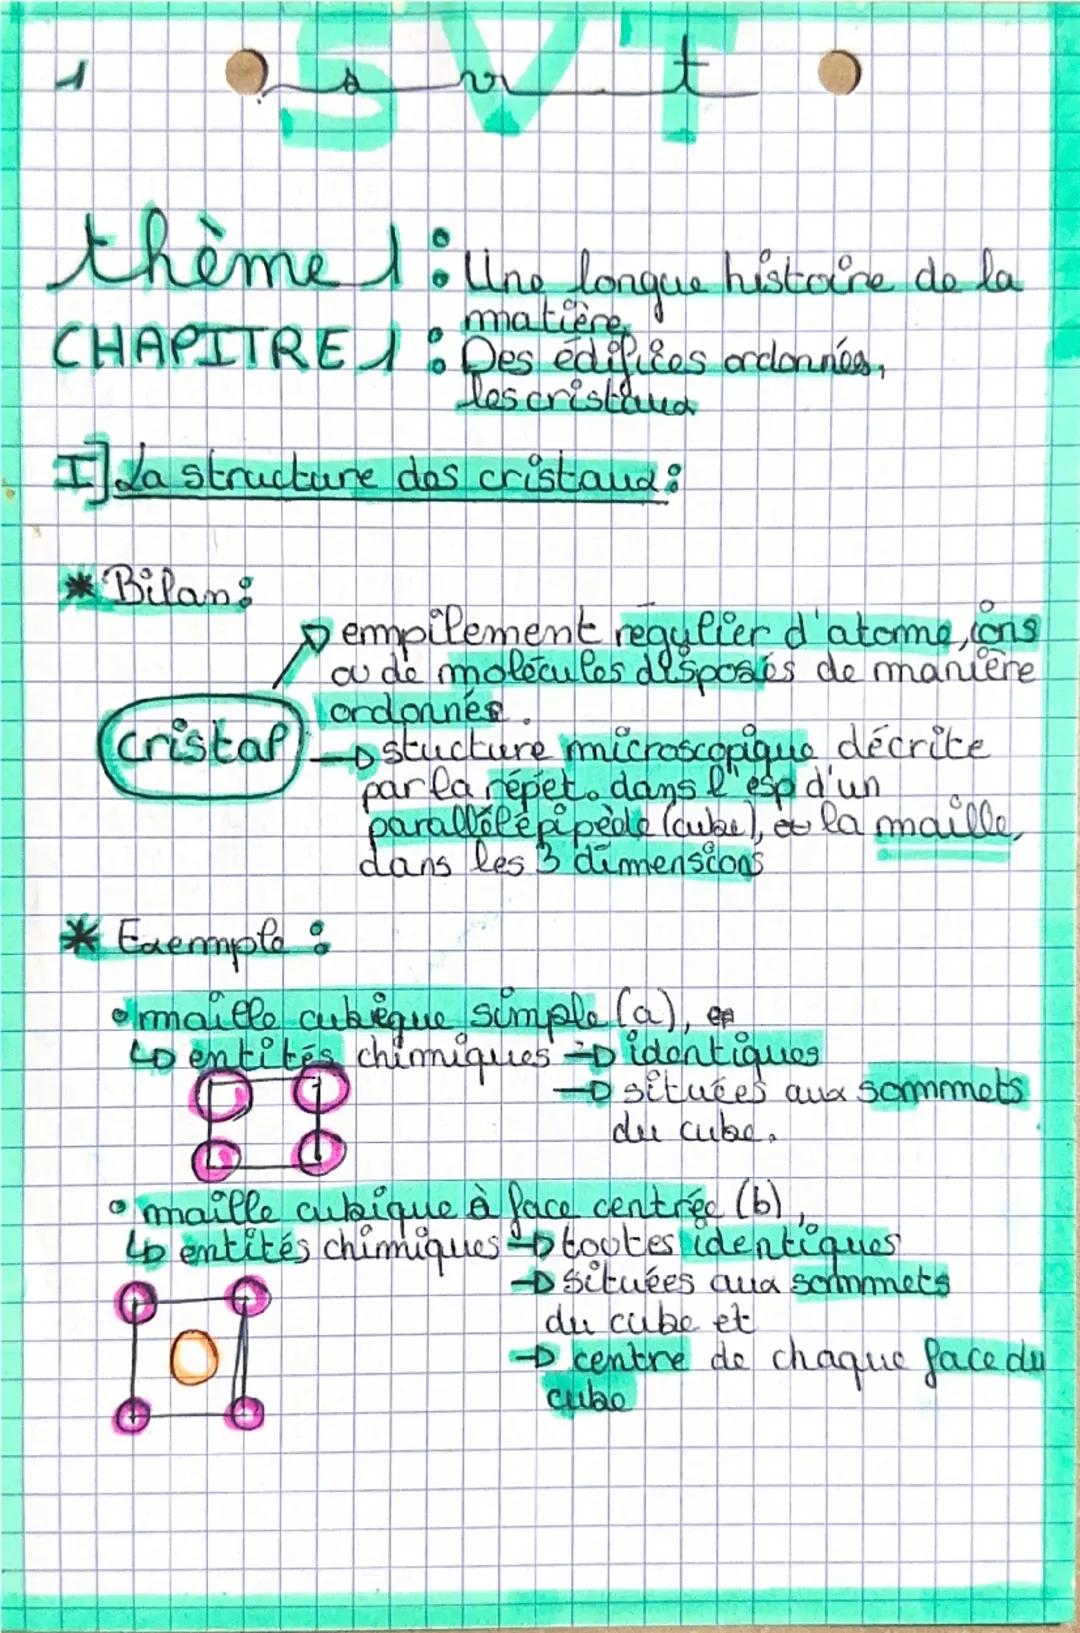 SVT
1
s v t
thème 1 : Une longue histoire de la
matière,
CHAPITRE 1 : Des édifices ordonnés,
les cristaux
I] La structure des cristaux :
* Bilan :
empilement régulier d'atome, ions
ou de molécules disposés de manière
ordonnée.
cristal
stucture microscopique décrite
par la répet. dans l'esp d'un
parallélépipède (cube), la maille,
dans les 3 dimensions
* Exemple :
• maille cubique simple (a),
↳ entités chimiques → identiques
→ situées aux sommets
du cube.
• maille cubique à face centrée (b),
↳ entités chimiques → toutes identiques
→ situées aux sommets
du cube et
→ centre de chaque face du
cube